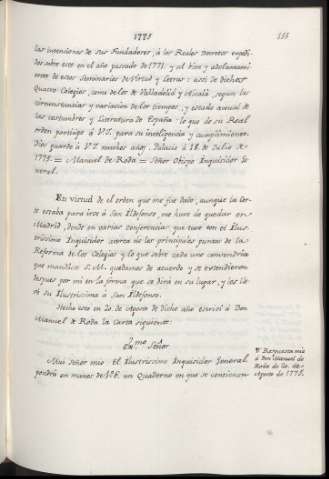 1775
155
las intenciones de sus Fundadores, à los Reales Decretos expedi-
dos sobre esto en el año pasado de 1771. y al bien y adelantami-
ento de estos Seminarios de Virtud y Letras: assi de dichos
Quatro Colegios, como de los de Valladolid y Alcalà, segun las
circunstancias y variacion de los tiempos, y estado actual de
las costumbres y Literatura de España: lo que de su Real
orden participo à V.I. para su inteligencia y cumplimiento.
Dios guarde à V.I. muchos años. Palacio à 18. de Julio de
1775. = Manuel de Roda = Señor Obispo Inquisidor Ge-
neral.
En virtud de el orden que me fue dado, aunque la Cor-
te estaba para irse à San Ildefonso, me huve de quedar en
Madrid, donde en varias conferencias que tuve con el Ilus-
trissimo Inquisidor acerca de los principales puntos de la
Reforma de los Colegios y lo que sobre cada uno convendria
que mandàse S. M. quedamos de acuerdo y se extendieron
despues por mi en la forma que se dirà en su lugar, y los lle-
vò su Ilustrissima à San Ildefonso.
Hecho esto en 20. de Agosto de dicho año escriví à Don
Manuel de Roda la Carta siguiente:
Ex.mo Señor
Respuesta mia
à Don Manuel de
Roda de 20. de
Agosto de 1775.
Mui Señor mio: El Ilustrissimo Inquisidor General
pondrà en manos de V.E. un Quaderno en que se contienen